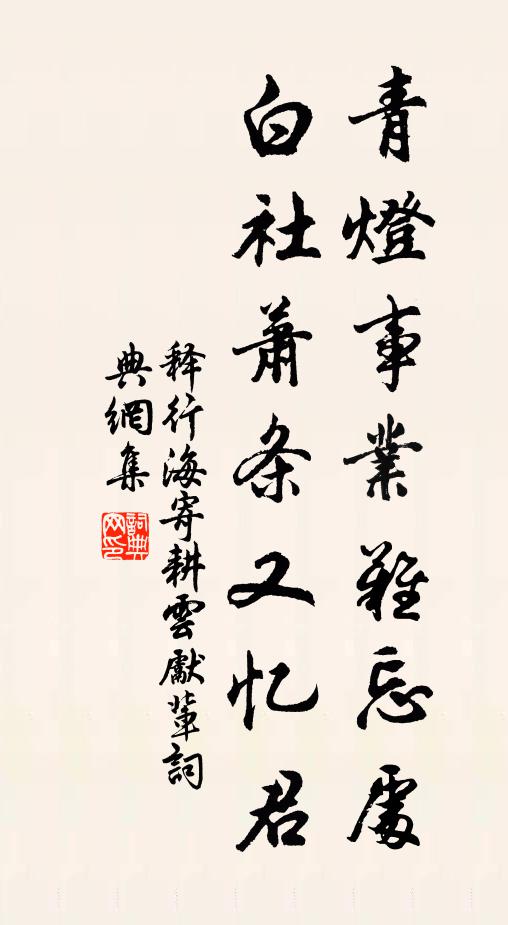 青燈事業難忘處
白社蕭条又忆君
释行海寄耕雲獻輩詞
典網集
詞典
网印